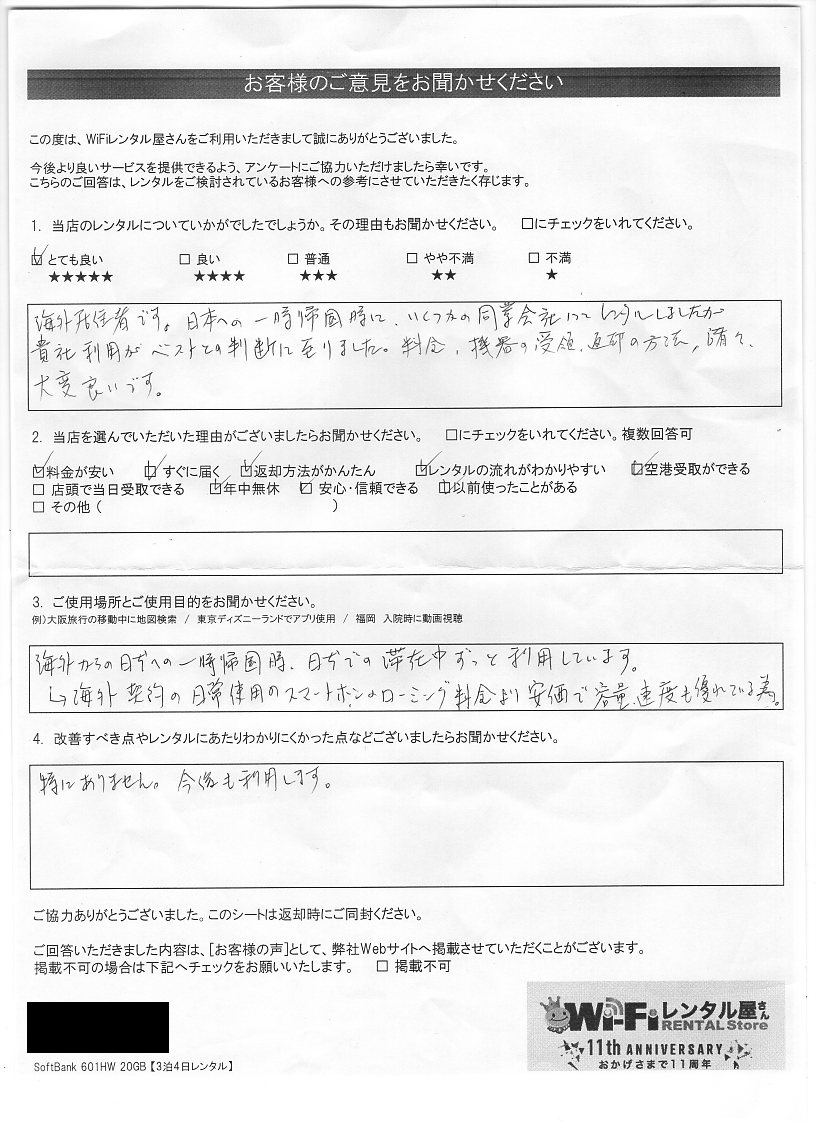 お客様のご意見をお聞かせください
この度は、WiFiレンタル屋さんをご利用いただきまして誠にありがとうございました。
今後より良いサービスを提供できるよう、アンケートにご協力いただけましたら幸いです。
こちらのご回答は、レンタルをご検討されているお客様への参考にさせていただきたく存じます。
1. 当店のレンタルについていかがでしたでしょうか。その理由もお聞かせください。 □にチェックをいれてください。
☑ とても良い □ 良い □ 普通 □ やや不満 □ 不満
★★★★★ ★★★★ ★★★ ★★ ★
海外居住者です。日本への一時帰国時に、いくつかの同業会社にてレンタルしましたが
貴社利用がベストとの判断に至りました。料金、機器の受領、返却の方法、諸々、
大変良いです。
2. 当店を選んでいただいた理由がございましたらお聞かせください。 □にチェックをいれてください。複数回答可
☑料金が安い ☑すぐに届く ☑返却方法がかんたん ☑レンタルの流れがわかりやすい ☑空港受取ができる
□ 店頭で当日受取できる ☑年中無休 ☑ 安心・信頼できる ☑以前使ったことがある
□ その他 ( )
3. ご使用場所とご使用目的をお聞かせください。
例)大阪旅行の移動中に地図検索 / 東京ディズニーランドでアプリ使用 / 福岡 入院時に動画視聴
海外からの日本への一時帰国時、日本での滞在中ずっと利用しています。
↳海外契約の日常使用のスマートホンのローミング料金より安価で容量、速度も優れている為。
4. 改善すべき点やレンタルにあたりわかりにくかった点などございましたらお聞かせください。
特にありません。今後も利用します。
ご協力ありがとうございました。このシートは返却時にご同封ください。
ご回答いただきました内容は、[お客様の声]として、弊社Webサイトへ掲載させていただくことがございます。
掲載不可の場合は下記へチェックをお願いいたします。 □ 掲載不可
Wi-Fiレンタル屋さん
RENTAL Store
11th ANNIVERSARY
おかげさまで11周年
SoftBank 601HW 20GB【3泊4日レンタル】